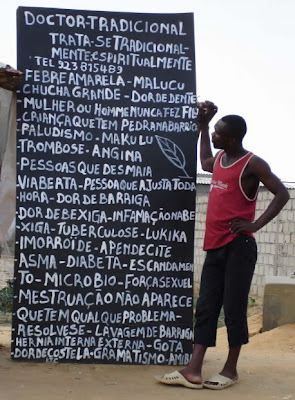 DOCTOR-TRADICIONAL
TRATA-SE TRADICIONAL-
MENTE, ESPIRITUALMENTE
TEL 923815489
FEBRE AMARELA-MALUCU
CHUCHA GRANDE-DOR DE DENTE
MULHER OU HOMME NUNCA FEZ FIL
CRIANÇA QUE TEM PEDRA NA BARRIG
PALUDISMO-MAKULU
TROMBOSE-ANGINA
-PESSOAS QUE DESMAIA
VIABERTA-PESSOA QUE AJUSTA TODA
HORA-DOR DE BARRIGA
DOR DE BEXIGA-INFAMAÇÃO NA BE
XIGA-TUBERCULOSE-LUKIKA
IMORROIDE-APENDECITE
ASMA-DIABETA-ESCANDAMEN
TO-MICROBIO-FORÇA SEXUEL
MESTRUAÇÃO NÃO APARECE
QUE TEM QUALQUE PROBLEMA-
RESOLVESE-LAVAGEM DE BARRIGA
HERNIA INTERNA EXTERNA-GOTA
DOR DE COSTELA-GRAMATISMO-AMIBI